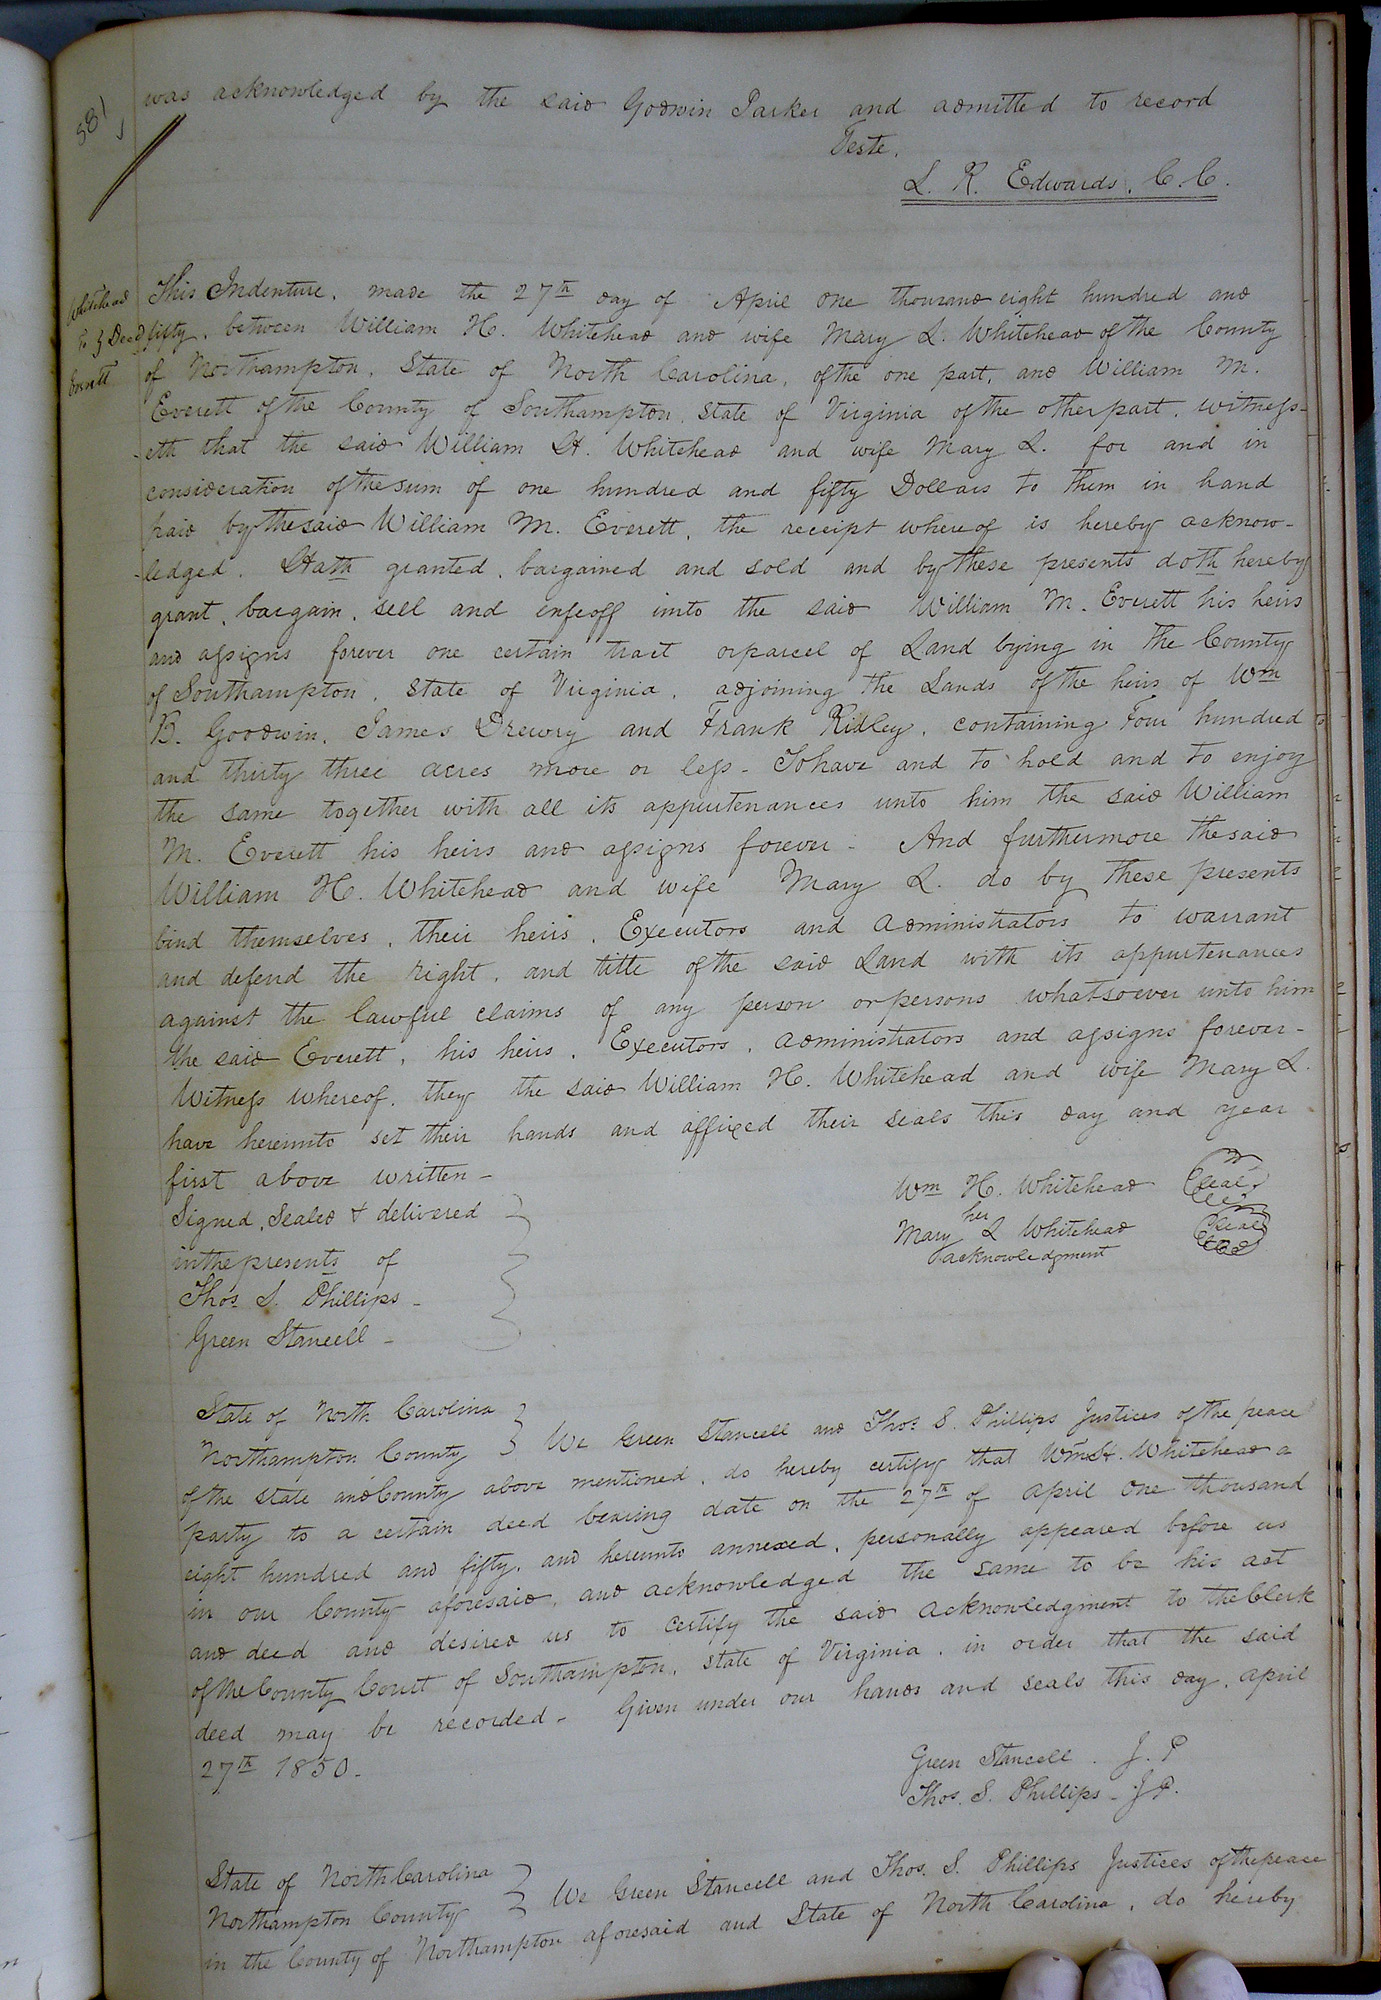 581
was acknowledged by the said Godwin Parker and admitted to record
Teste,
L. R. Edwards, C. C.
Whitehead
To } Deed
Everett
This Indenture, made the 27th day of April one thousand eight hundred and
fifty, between William H. Whitehead and wife Mary L. Whitehead of the County
of Northampton, State of North Carolina, of the one part, and William M.
Everett of the County of Southampton, State of Virginia of the other part, witness-
-eth that the said William H. Whitehead and wife Mary L. for and in
consideration of the sum of one hundred and fifty Dollars to them in hand
paid by the said William M. Everett, the receipt whereof is hereby acknow-
-ledged, Hath granted, bargained and sold and by these presents doth hereby
grant, bargain, sell and enfeoff unto the said William M. Everett his heirs
and assigns forever one certain tract or parcel of Land lying in the County
of Southampton, State of Virginia, adjoining the Lands of the heirs of Wm
B. Goodwin, James Drewry and Frank Ridley, containing Four hundred
and thirty three acres more or less - To have and to hold and to enjoy
the same together with all its appurtenances unto him the said William
M. Everett his heirs and assigns forever - And furthermore the said
William H. Whitehead and wife Mary L. do by these presents
bind themselves, their heirs, Executors and administrators to warrant
and defend the right, and title of the said Land with its appurtenances
against the lawful claims of any person or persons whatsoever unto him
the said Everett, his heirs, Executors, administrators and assigns forever -
Witness whereof, they the said William H. Whitehead and wife Mary L.
have hereunto set their hands and affixed their seals this day and year
first above written -
Wm H. Whitehead Seal
Signed, Sealed & delivered }
her
Mary L Whitehead Seal
acknowledgment
in the presents of
Thos. S. Phillips -
Green Stancell -
State of North Carolina }
Northampton County } We Green Stancell and Thos. S. Phillips Justices of the peace
of the State and County above mentioned, do hereby certify that Wm H. Whitehead a
party to a certain deed bearing date on the 27th of april one thousand
eight hundred and fifty, and hereunto annexed, personally appeared before us
in our County aforesaid, and acknowledged the same to be his act
and deed and desired us to certify the said acknowledgment to the Clerk
of the County Court of Southampton, State of Virginia, in order that the said
deed may be recorded - Given under our hands and seals this day, april
27th 1850 -
Green Stancell. J. P
Thos. S. Phillips - J P.
State of North Carolina }
Northampton County } We Green Stancell and Thos. S. Phillips Justices of the peace
in the County of Northampton aforesaid and State of North Carolina, do hereby